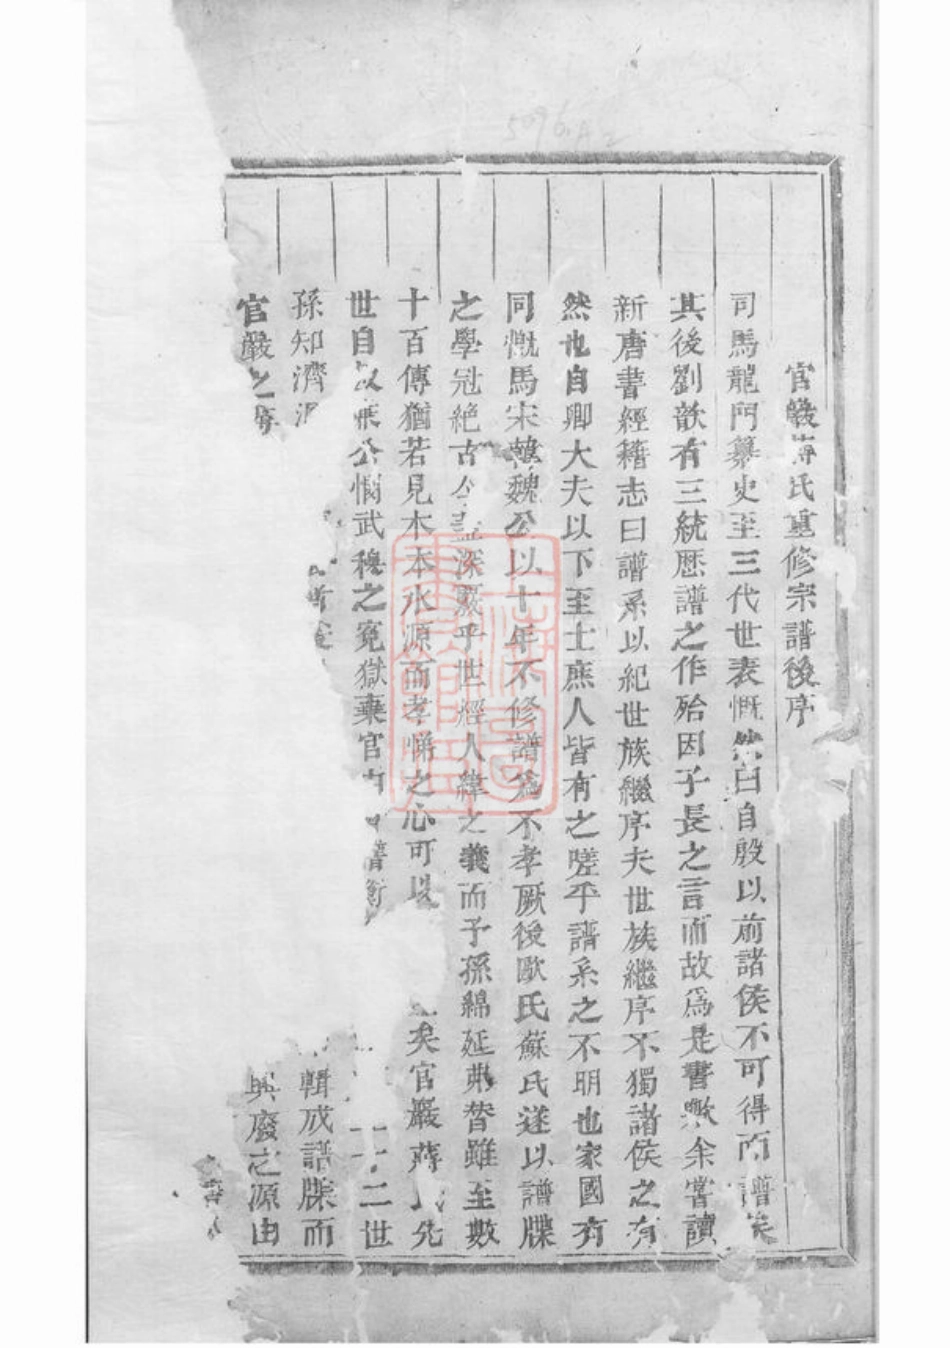 官巖蔣氏重修宗譜後序
司馬龍門纂史至三代世表慨然曰自殷以前諸侯不可得而譜矣
其後劉歆有三統歷譜之作殆因子長之言而故為是書歟余嘗讀
新唐書經籍志曰譜系以紀世族繼序夫世族繼序不獨諸侯之有
然也自卿大夫以下至士庶人皆有之嗟乎譜系之不明也家國有
同慨焉宋韓魏公以十年不修譜為不孝厥後歐氏蘇氏遂以譜牒
之學冠絕古今 深嚴乎世經人緯之義而子孫綿延弗替雖至數
十百傳猶若見木本水源而孝悌之心可以 矣官巖蔣氏先
世自 公憫武穆之冤獄棄官 譜 十二世
孫知濟 輯成譜牒而
官巖之 興廢之源由